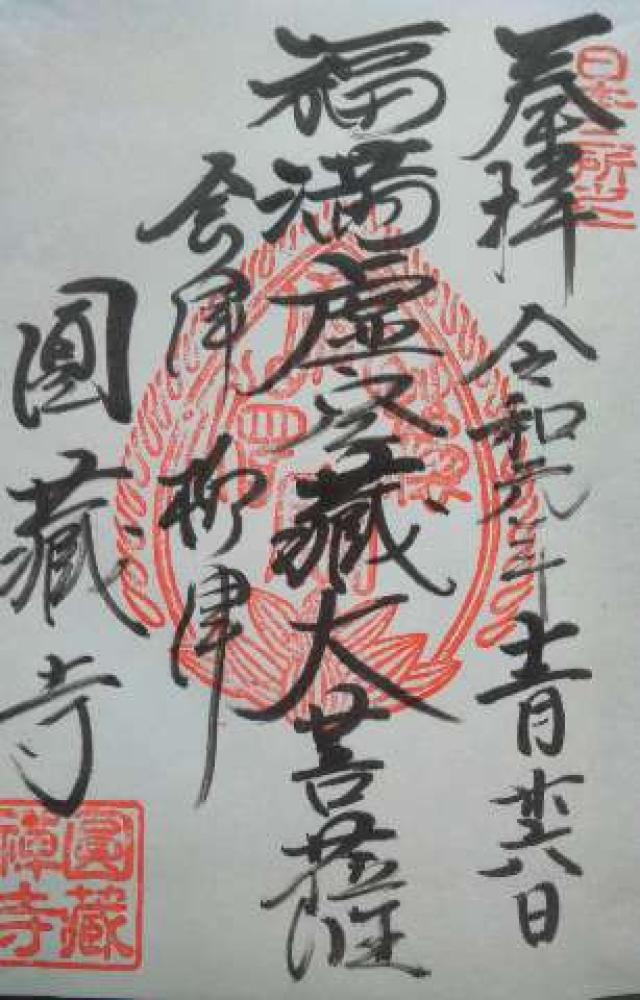 日本三所之
奉拝 令和元年十一月廿八日
福満虚空藏大菩薩
会津 柳津
圓藏寺
圓藏
禅寺